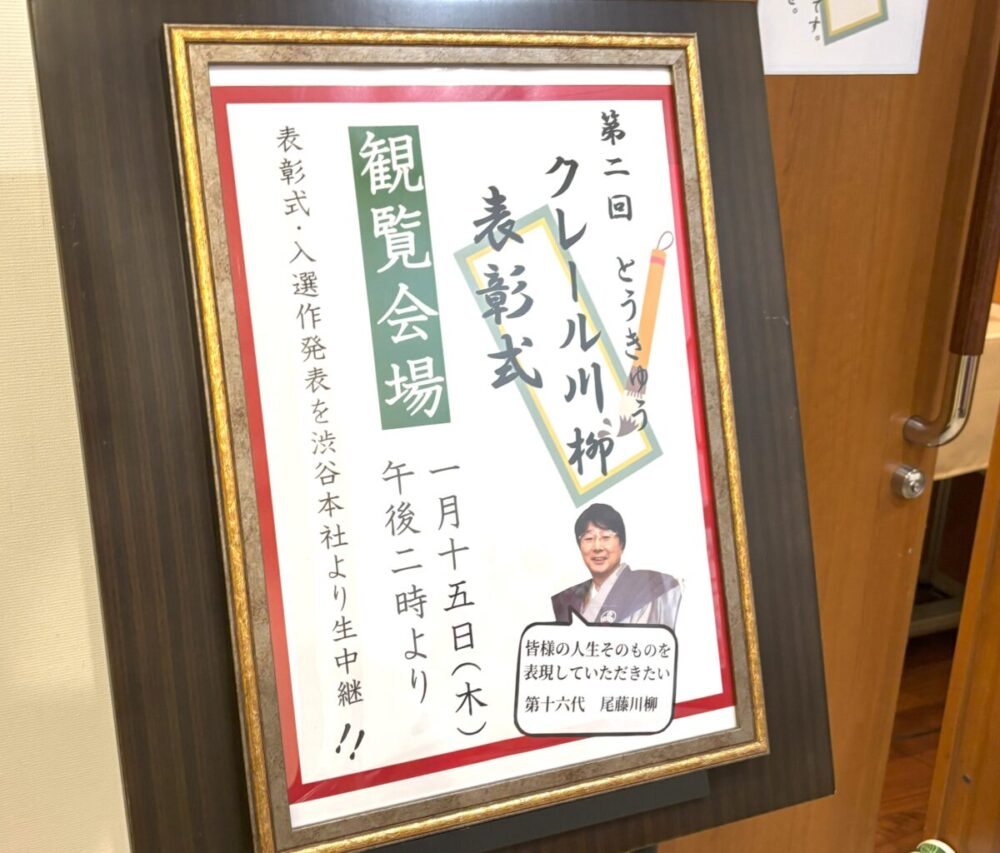 第二回 とうきゅう
クレール川柳
表彰式
観覧会場
一月十五日(木)
午後二時より
表彰式・入選作発表を渋谷本社より生中継!!
皆様の人生そのものを
表現していただきたい
第十六代 尾藤川柳
です。